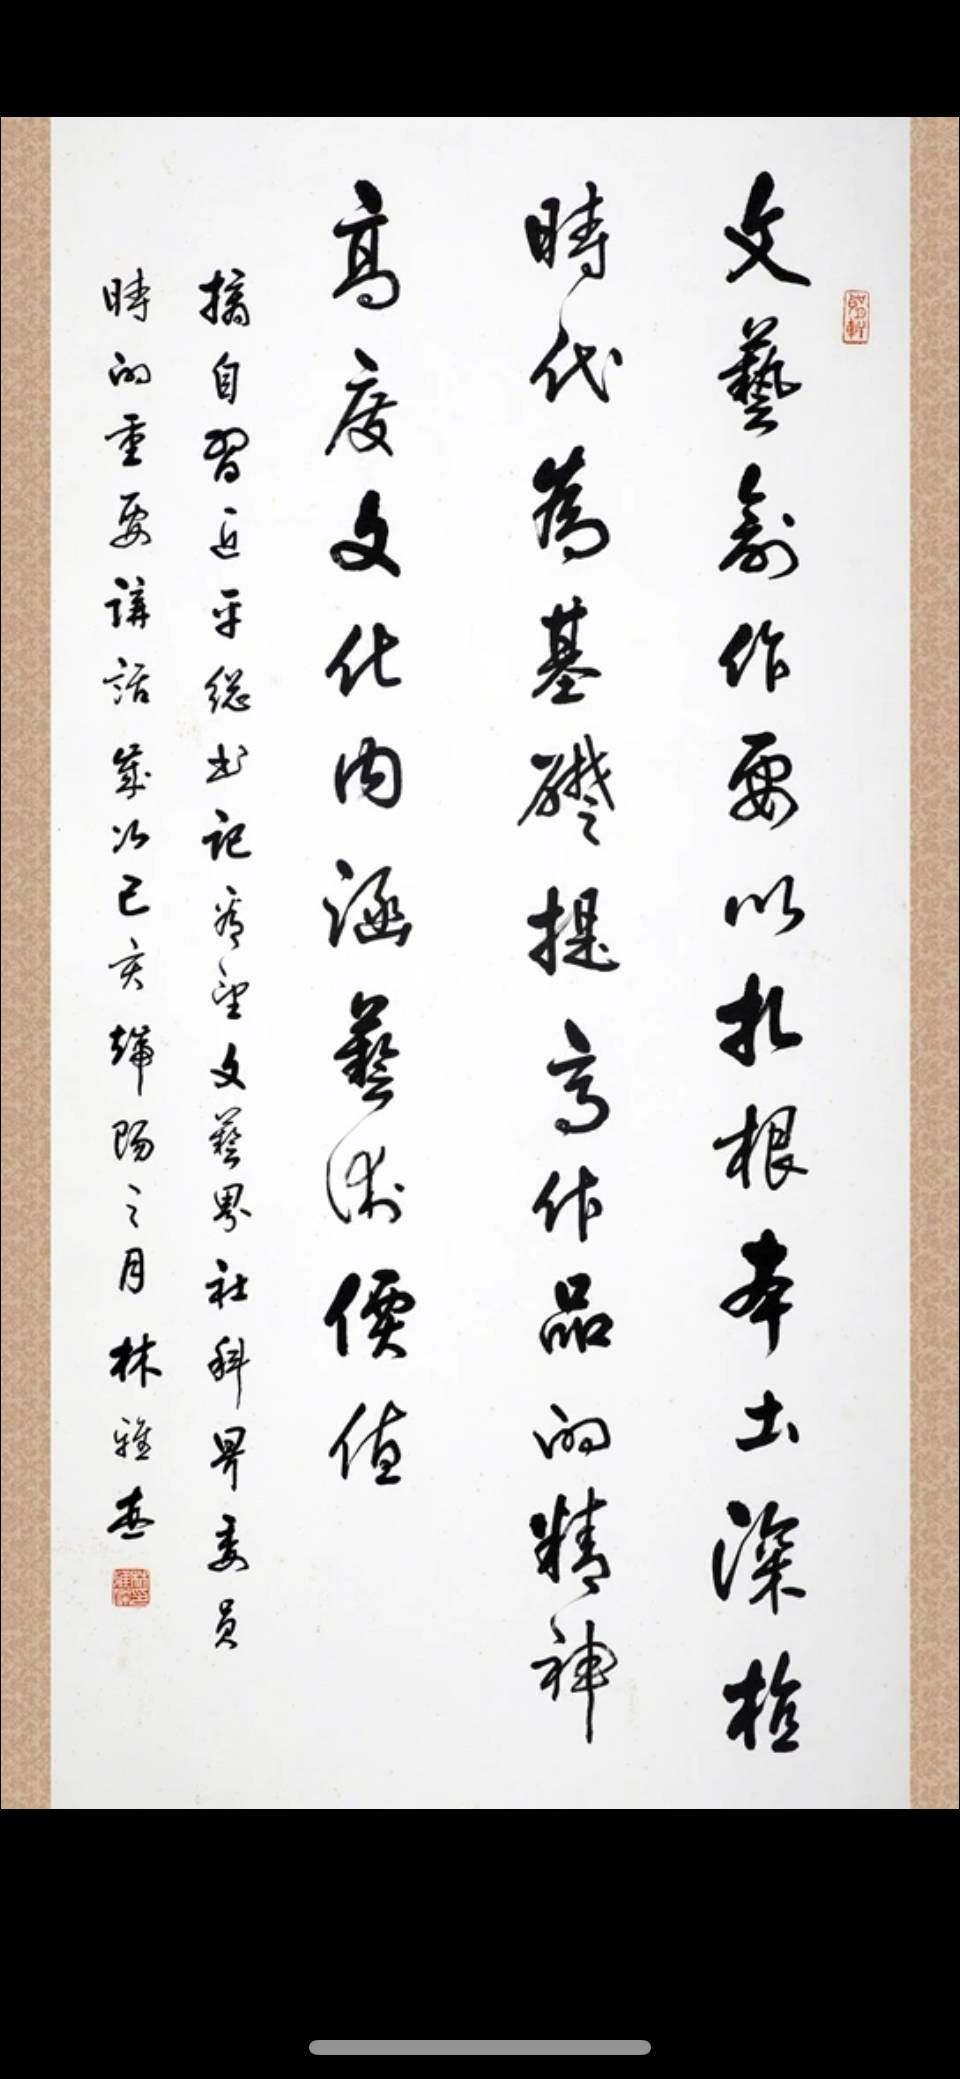 文藝創作要以扎根本土深植
時代為基礎提高作品的精神
高度文化內涵藝術價值
摘自習近平總書記看望文藝界社科界委員
時的重要講話歲次己亥端陽之月林雅杰